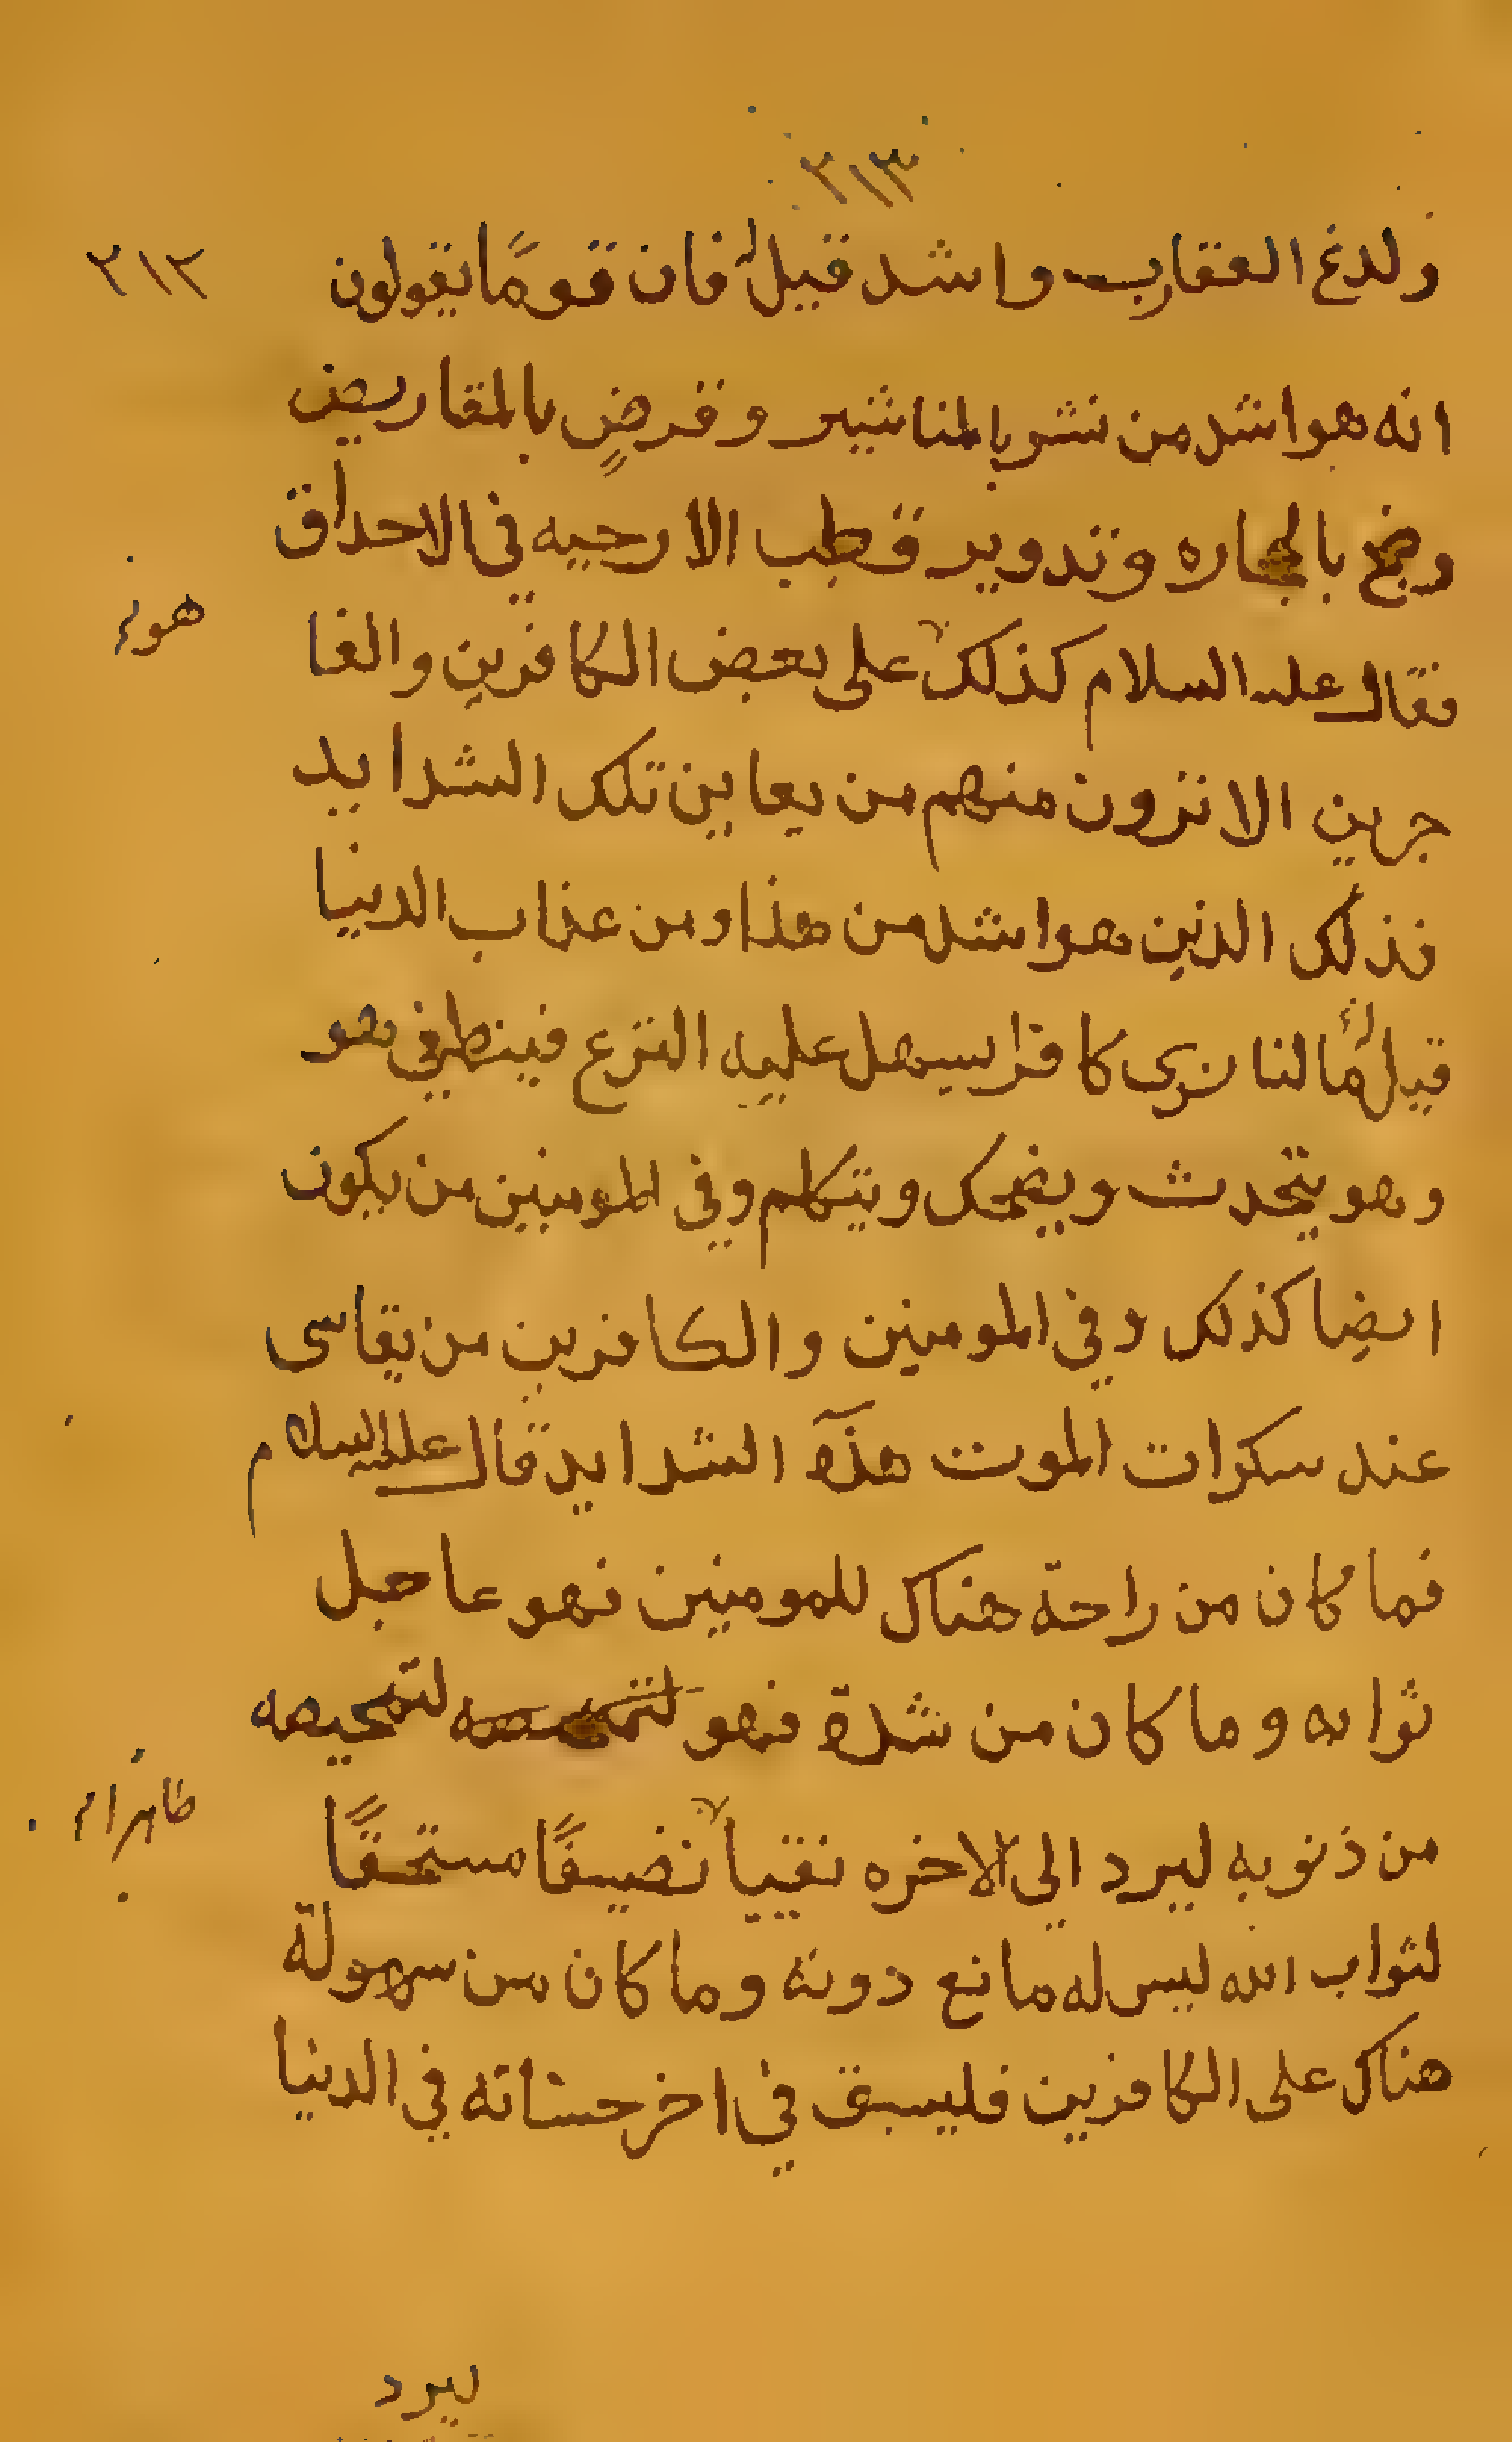 ٣١٣
ولدغ العقارب واشد قيل له فان قومًا يقولون
٣١٢
انه هو اشد من نشر بالمناشير وقرضٍ بالمقاريض
ورضخ بالحجاره وتدوير قطب الارحيه في الاحداق
هو
فقال عليه السلام كذلك على بعض الكافرين والفا
جرين الا ترون منهم من يعاين تلك الشدايد
فذلك الذين هو اشد من هذا ومن عذاب الدنيا
قيل له فما لنا نرى كافرا يسهل عليه النزع فينطفي هو
وهو يتحدث ويضحك ويتكلم وفي المومنين من يكون
ايضا كذلك وفي المومنين والكافرين من يقاسى
عند سكرات الموت هذه الشدايد قال عليه السلام
فما كان من راحة هناك للمومنين فهو عاجل
ثوابه وما كان من شدة فهو لتمحيصه
طاهرا
من ذنوبه ليرد الى الاخره نقيا نضيفًا مستحقًا
لثواب الله ليس له مانع دونه وما كان من سهولة
هناك على الكافرين فليسبق في اخر حسناته في الدنيا
ليرد